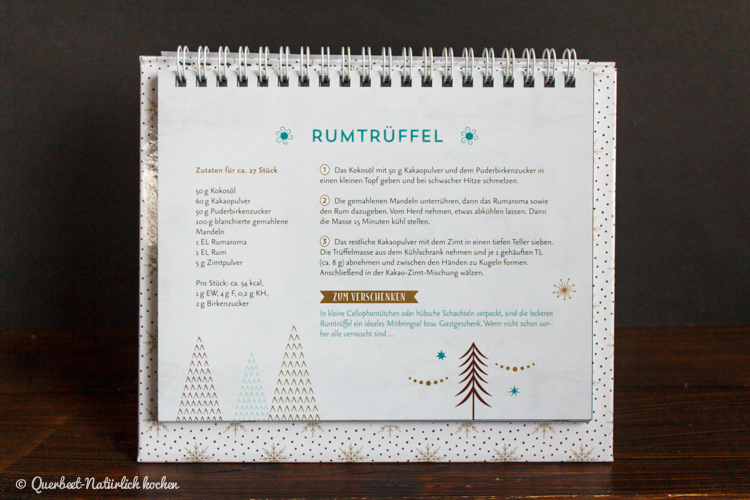 RUMTRÜFFEL
Zutaten für ca. 27 Stück
50 g Kokosöl
60 g Kakaopulver
50 g Puderbirkenzucker
100 g blanchierte gemahlene
Mandeln
1 EL Rumaroma
1 EL Rum
5 g Zimtpulver
Pro Stück: ca. 54 kcal,
1 g EW, 4 g F, 0,2 g KH,
2 g Birkenzucker
1 Das Kokosöl mit 50 g Kakaopulver und dem Puderbirkenzucker in
einen kleinen Topf geben und bei schwacher Hitze schmelzen.
2 Die gemahlenen Mandeln unterrühren, dann das Rumaroma sowie
den Rum dazugeben. Vom Herd nehmen, etwas abkühlen lassen. Dann
die Masse 15 Minuten kühl stellen.
3 Das restliche Kakaopulver mit dem Zimt in einen tiefen Teller sieben.
Die Trüffelmasse aus dem Kühlschrank nehmen und je 1 gehäuften TL
(ca. 8 g) abnehmen und zwischen den Händen zu Kugeln formen.
Anschließend in der Kakao-Zimt-Mischung wälzen.
ZUM VERSCHENKEN
In kleine Cellophantütchen oder hübsche Schachteln verpackt, sind die leckeren
Rumtrüffel ein ideales Mitbringsel bzw. Gastgeschenk. Wenn nicht schon vor-
her alle vernascht sind ...
© Querbeet-Natürlich kochen